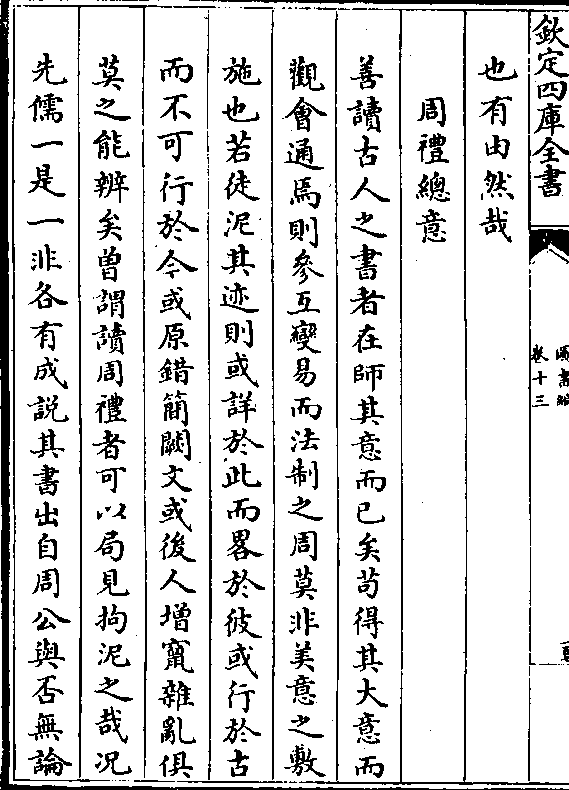 欽定四庫全書
圖書編
卷十三
也有由然哉
周禮總意
善讀古人之書者在師其意而已矣苟得其大意而
觀會通焉則參互變易而法制之周莫非美意之敷
施也若徒泥其迹則或詳於此而畧於彼或行於古
而不可行於今或原錯簡闕文或後人増竄雜亂俱
莫之能辨矣曽謂讀周禮者可以局見拘泥之哉况
先儒一是一非各有成說其書出自周公與否無論